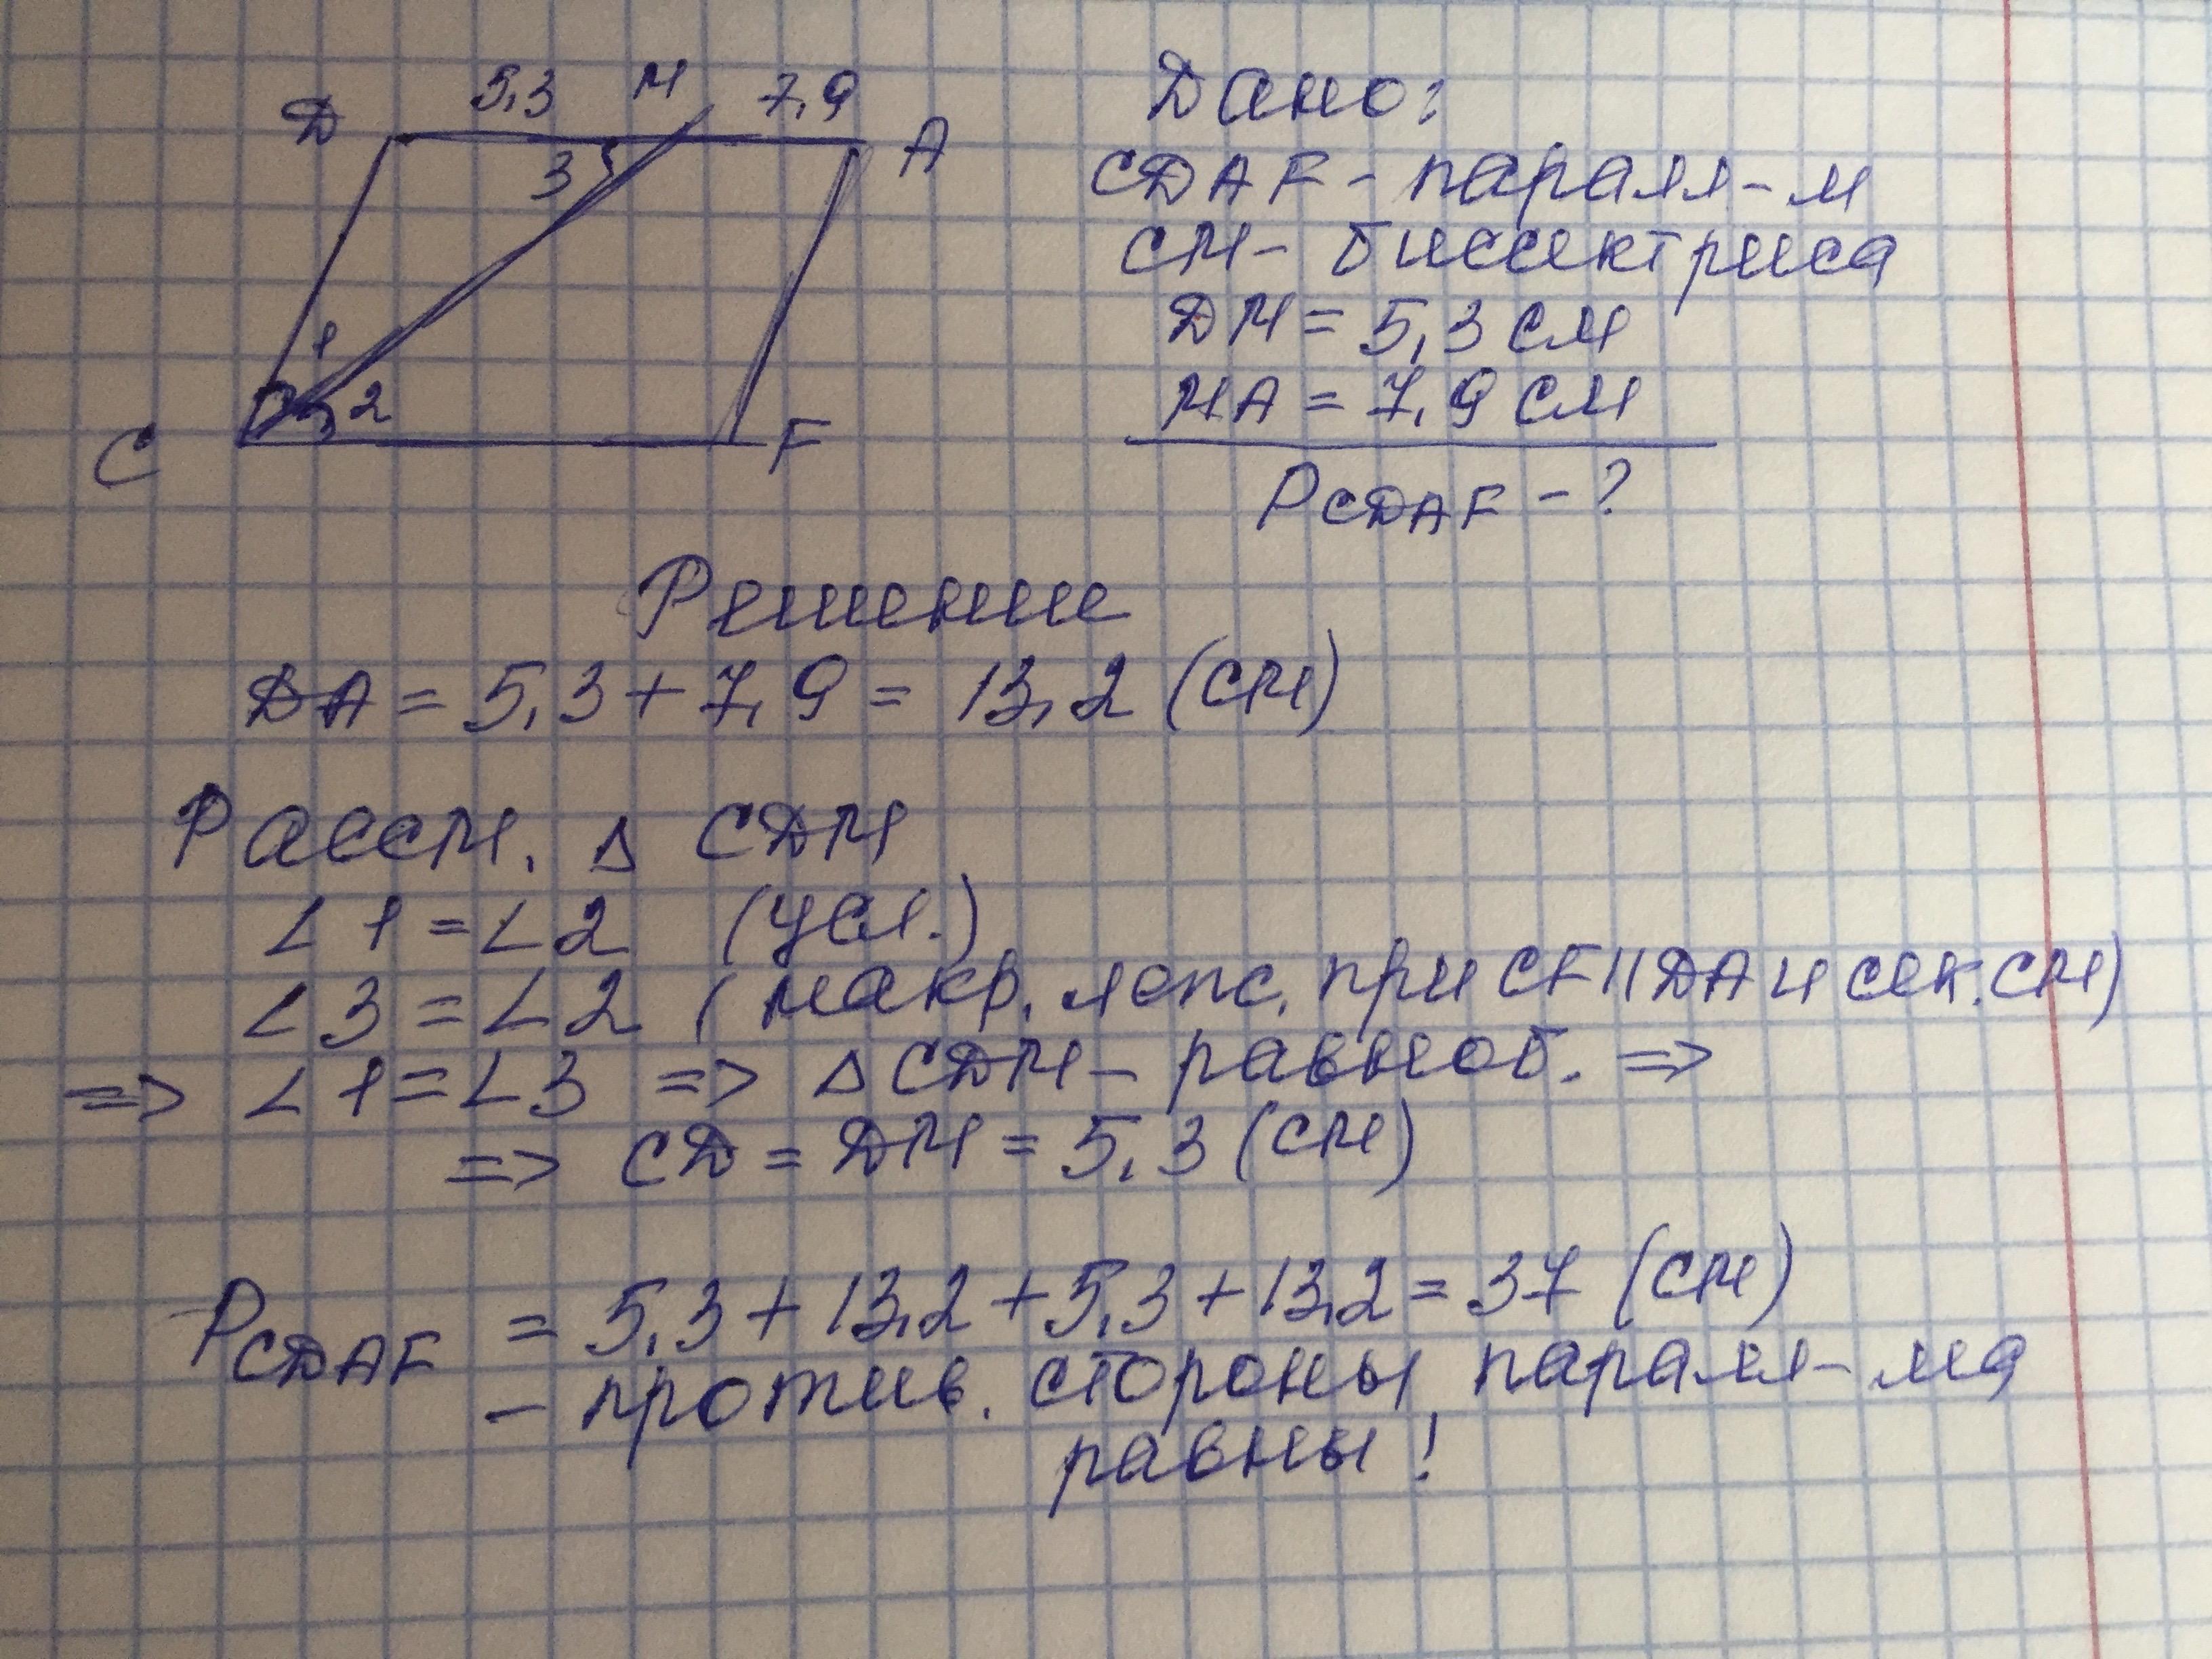 D 5,3 M 7,9 A
3
1
2
C F
Дано:
CDAF - паралл-м
CM - биссектриса
DM = 5,3 см
MA = 7,9 см
PCDAF - ?
Решение
DA = 5,3 + 7,9 = 13,2 (см)
Рассм. Δ CDM
∠1 = ∠2 (усл.)
∠3 = ∠2 (накр. леж. при CF || DA и сек. CM)
=> ∠1 = ∠3 => Δ CDM - равноб. =>
=> CD = DM = 5,3 (см)
PCDAF = 5,3 + 13,2 + 5,3 + 13,2 = 37 (см)
- против. стороны паралл-ма
равны!